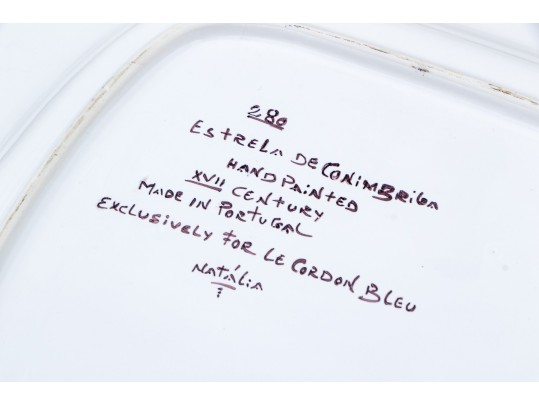 280
ESTRELA DE CONIMBRIGA
HAND PAINTED
XVII CENTURY
MADE IN PORTUGAL
EXCLUSIVELY FOR LE CORDON BLEU
NATÁLIA